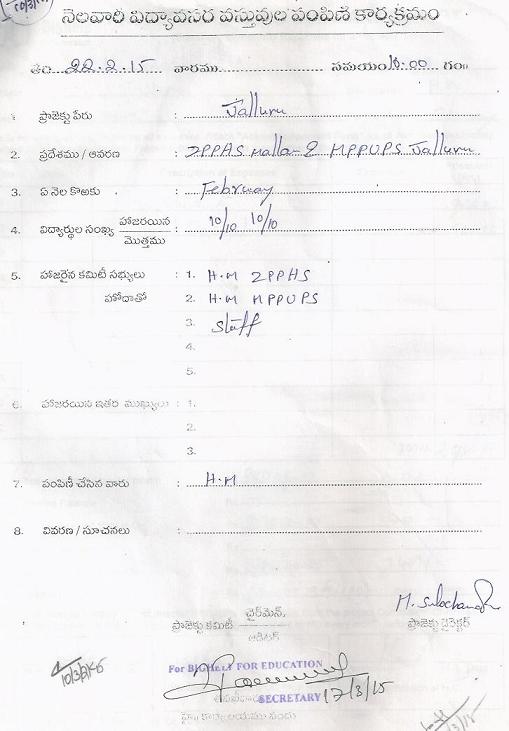 10/3/15
నెలవారీ విద్యావసర వస్తువుల పంపిణీ కార్యక్రమం
తేది 22.2.15 వారము సమయం 10.00 గం॥
1. ప్రాజెక్టు పేరు : Jalluru
2. ప్రదేశము / ఆవరణ : ZPPHS Malla-2 MPPUPS Jalluru
3. ఏ నెల కొఱకు : February
4. విద్యార్థుల సంఖ్య హాజరయిన / మొత్తము : 10/10 10/10
5. హాజరైన కమిటీ సభ్యులు : 1. H.M ZPPHS
హోదాతో 2. H.M MPPUPS
3. Staff
4.
5.
6. హాజరయిన ఇతర ముఖ్యులు : 1.
2.
3.
7. పంపిణీ చేసిన వారు : H.M
8. వివరణ / సూచనలు :
M. Sulochana
ప్రాజెక్టు కమిటీ ఛైర్మెన్ / ఆడిటర్
ప్రాజెక్టు డైరెక్టర్
For BIGHELP FOR EDUCATION
SECRETARY 17/3/15
హై॥ కార్యాలయము నందు